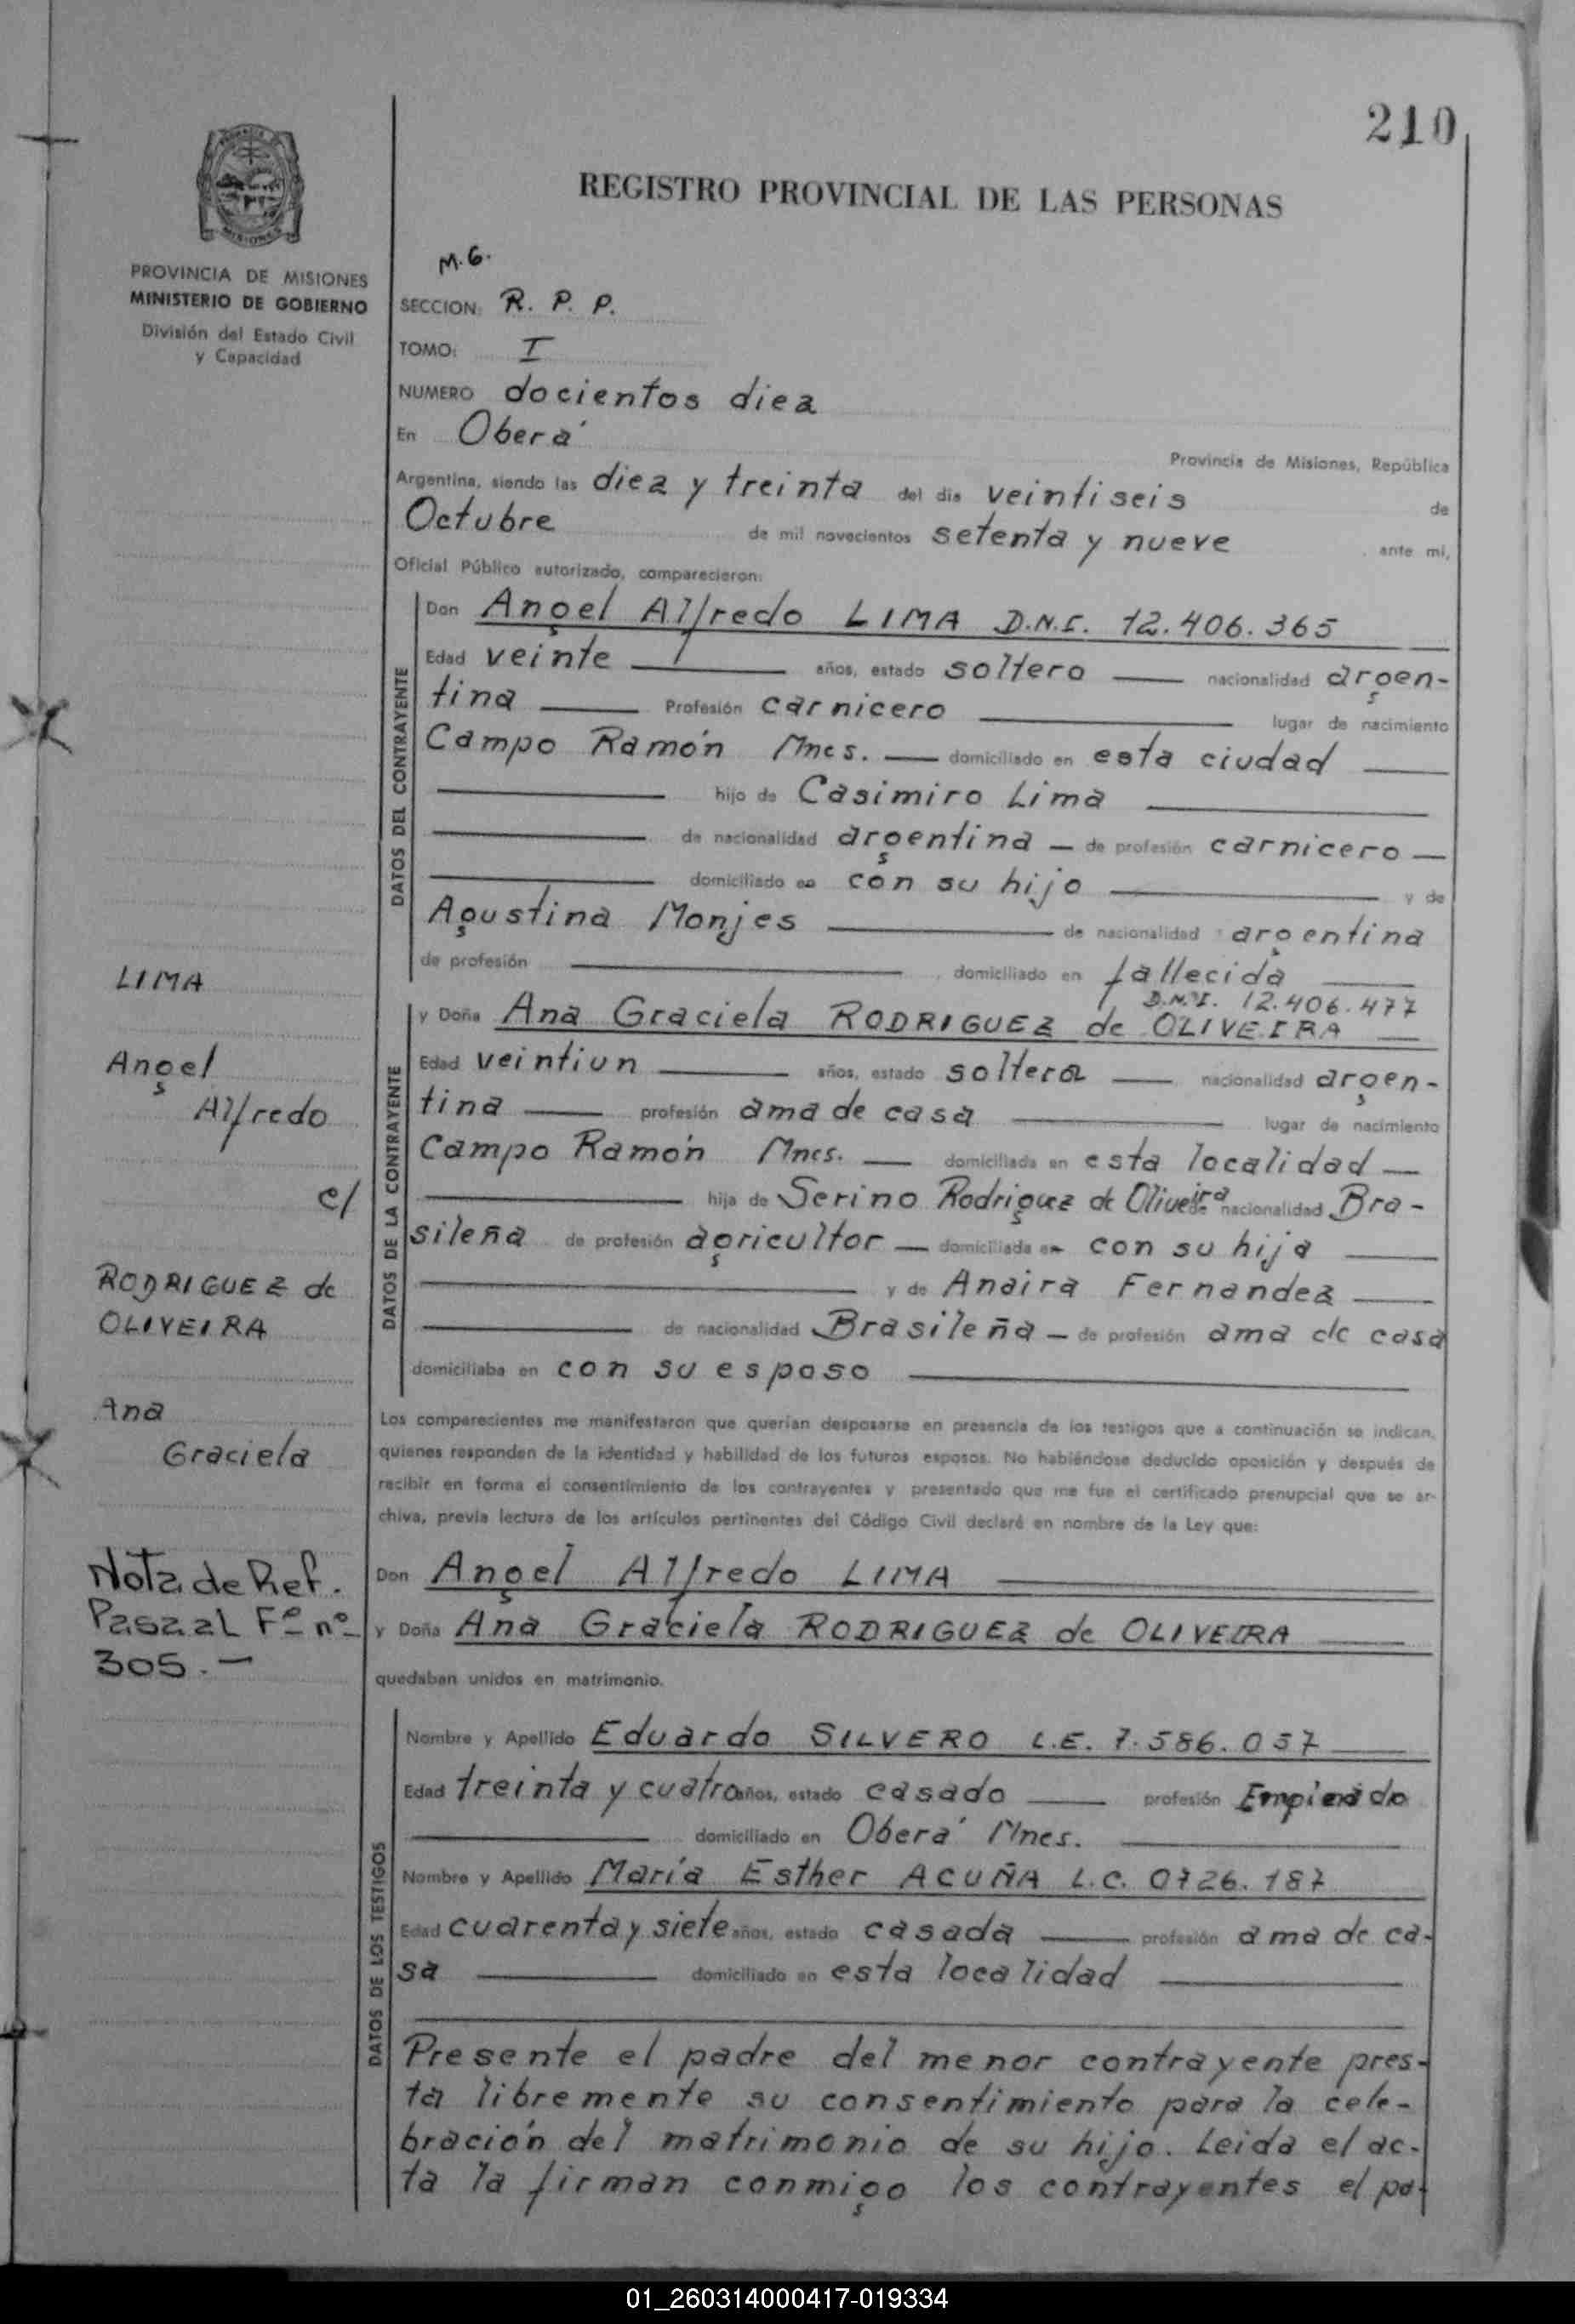 210
REGISTRO PROVINCIAL DE LAS PERSONAS
MISIONES
PROVINCIA DE MISIONES
MINISTERIO DE GOBIERNO
División del Estado Civil
y Capacidad
M.G.
SECCION: R. P. P.
TOMO: I
NUMERO docientos diez
En Oberá
Provincia de Misiones, República
Argentina, siendo las diez y treinta del día veintiseis de
Octubre de mil novecientos setenta y nueve ante mí,
Oficial Público autorizado, comparecieron:
DATOS DEL CONTRAYENTE
Don Angel Alfredo LIMA D.N.I. 12.406.365
Edad veinte años, estado soltero nacionalidad argen-
tina Profesión carnicero lugar de nacimiento
Campo Ramón Mnes. domiciliado en esta ciudad
hijo de Casimiro Lima
de nacionalidad argentina de profesión carnicero
domiciliado en con su hijo y de
Agustina Monjes de nacionalidad argentina
de profesión domiciliado en fallecida
DATOS DE LA CONTRAYENTE
D.N.I. 12.406.477
y Doña Ana Graciela RODRIGUEZ de OLIVEIRA
Edad veintiun años, estado soltera nacionalidad argen-
tina profesión ama de casa lugar de nacimiento
Campo Ramón Mnes. domiciliada en esta localidad
hija de Serino Rodriguez de Oliveira de nacionalidad Bra-
sileña de profesión agricultor domiciliada en con su hija
y de Anaira Fernandez
de nacionalidad Brasileña de profesión ama de casa
domiciliaba en con su esposo
Los comparecientes me manifestaron que querían desposarse en presencia de los testigos que a continuación se indican,
quienes responden de la identidad y habilidad de los futuros esposos. No habiéndose deducido oposición y después de
recibir en forma el consentimiento de los contrayentes y presentado que me fue el certificado prenupcial que se ar-
chiva, previa lectura de los artículos pertinentes del Código Civil declaré en nombre de la Ley que:
Don Angel Alfredo LIMA
y Doña Ana Graciela RODRIGUEZ de OLIVEIRA
quedaban unidos en matrimonio.
DATOS DE LOS TESTIGOS
Nombre y Apellido Eduardo SILVERO L.E. 7.586.057
Edad treinta y cuatro años, estado casado profesión Empleado
domiciliado en Oberá Mnes.
Nombre y Apellido María Esther ACUÑA L.C. 0726.187
Edad cuarenta y siete años, estado casada profesión ama de ca-
sa domiciliado en esta localidad
Presente el padre del menor contrayente pres-
ta libremente su consentimiento para la cele-
bración del matrimonio de su hijo. Leida el ac-
ta la firman conmigo los contrayentes el pa-
LIMA
Angel
Alfredo
c/
RODRIGUEZ de
OLIVEIRA
Ana
Graciela
Nota de Ref.
Pasa al Fº nº
305.-
01_260314000417-019334